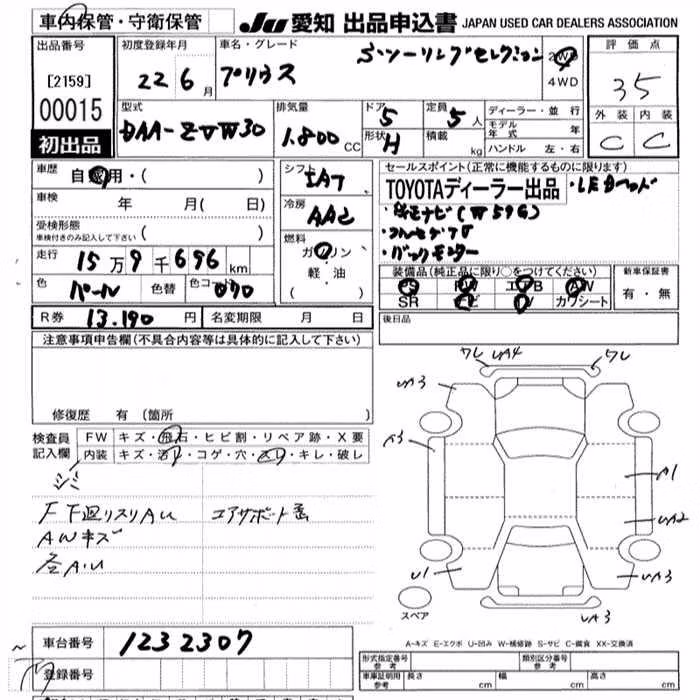 車内保管・守衛保管
JU 愛知 出品申込書 JAPAN USED CAR DEALERS ASSOCIATION
出品番号
[2159]
00015
初出品
初度登録年月
22 6 月
車名・グレード
Sツーリングセレクション
プリウス
2WD
4WD
評価点
35
外装 内装
C C
型式
DAA-ZVW30
排気量
1.800 CC
ドア 5
形状 H
定員 5 人
積載 kg
ディーラー・並行
モデル年式 年
ハンドル 左・右
車歴 自家用・( )
車検 年 月( 日)
受検形態
車検付きのみ記入して下さい ( )
走行 15万9千696 km
色 パール 色替 色コード 070
シフト
IAT
冷房
AAC
燃料
ガソリン
軽・油
( )
セールスポイント(正常に機能するものに限ります)
TOYOTAディーラー出品 ・LEDヘッド
・バックモニター
装備品(純正品に限り○をつけてください)
PS PW エアB AW
SR ナビ TV カワシート
新車保証書
有・無
R券 13.190 円 名変期限 月 日
後日品
注意事項申告欄(不具合内容等は具体的に記入して下さい)
修復歴 有 (箇所 )
検査員記入欄
FW キズ・飛石・ヒビ割・リペア跡・X要
内装 キズ・汚れ・コゲ・穴・スレ・キレ・破レ
F下廻リスリAU エアサポート
AWキズ
各A.U
ワレ UA4 ワレ
UA3
A3
A1
UA2
U1
UA3
UA3
スペア
A-キズ E-エクボ U-凹み W-補修跡 S-サビ C-腐食 XX-交換済
車台番号 1232307
登録番号
形式指定番号 参考
類別区分番号 参考
車庫証明用 参考 長さ cm 幅 cm 高さ cm